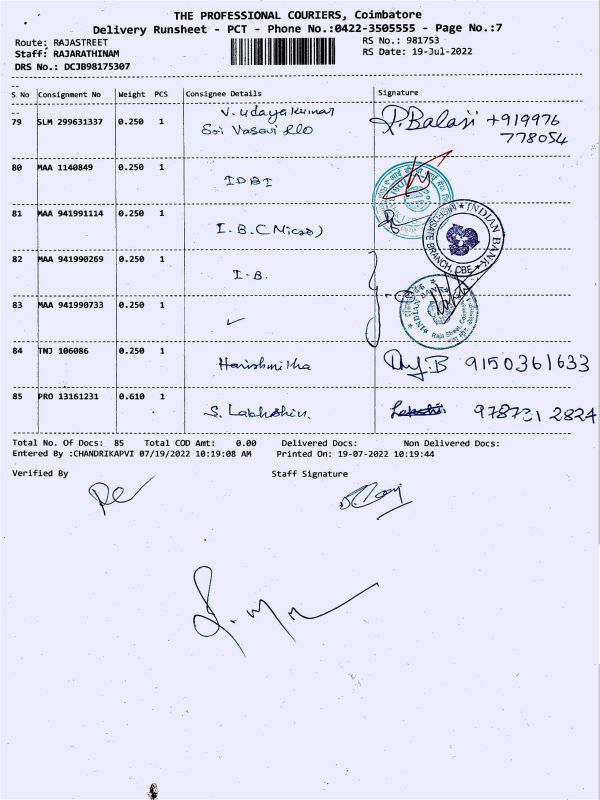 THE PROFESSIONAL COURIERS, Coimbatore
Delivery Runsheet - PCT - Phone No.:0422-3505555 - Page No.:7
Route: RAJASTREET
RS No.: 981753
Staff: RAJARATHINAM
RS Date: 19-Jul-2022
DRS No.: DCJB98175307
S No Consignment No Weight PCS Consignee Details Signature
79 SLM 299631337 0.250 1 V. udayakumar P. Balaji +919976
Sri Vasavi 778054
80 MAA 1140849 0.250 1 IDBI
81 MAA 941991114 0.250 1 I.B.C (Micso)
INDIAN BANK
MICROSATE BRANCH, CBE
82 MAA 941990269 0.250 1 I-B.
83 MAA 941990733 0.250 1
INDIAN BANK
Raja Street,
84 TNJ 106086 0.250 1 Harishmitha 9150361633
85 PRO 13161231 0.610 1 9787312824
Total No. Of Docs: 85 Total COD Amt: 0.00 Delivered Docs: Non Delivered Docs:
Entered By :CHANDRIKAPVI 07/19/2022 10:19:08 AM Printed On: 19-07-2022 10:19:44
Verified By Staff Signature